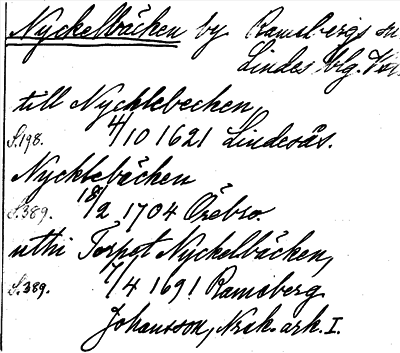 Nyckelbäcken by Ramsbergs sn
Lindes blg. Vm.
till Nycklebecken,
S. 198. 4/10 1621 Lindesås.
Nycklebäcken
S. 389. 18/2 1704 Örebro.
uthi Torpet Nyckelbäcken,
S. 389. 17/4 1691 Ramsberg
Johansson, Norak. ark. I.